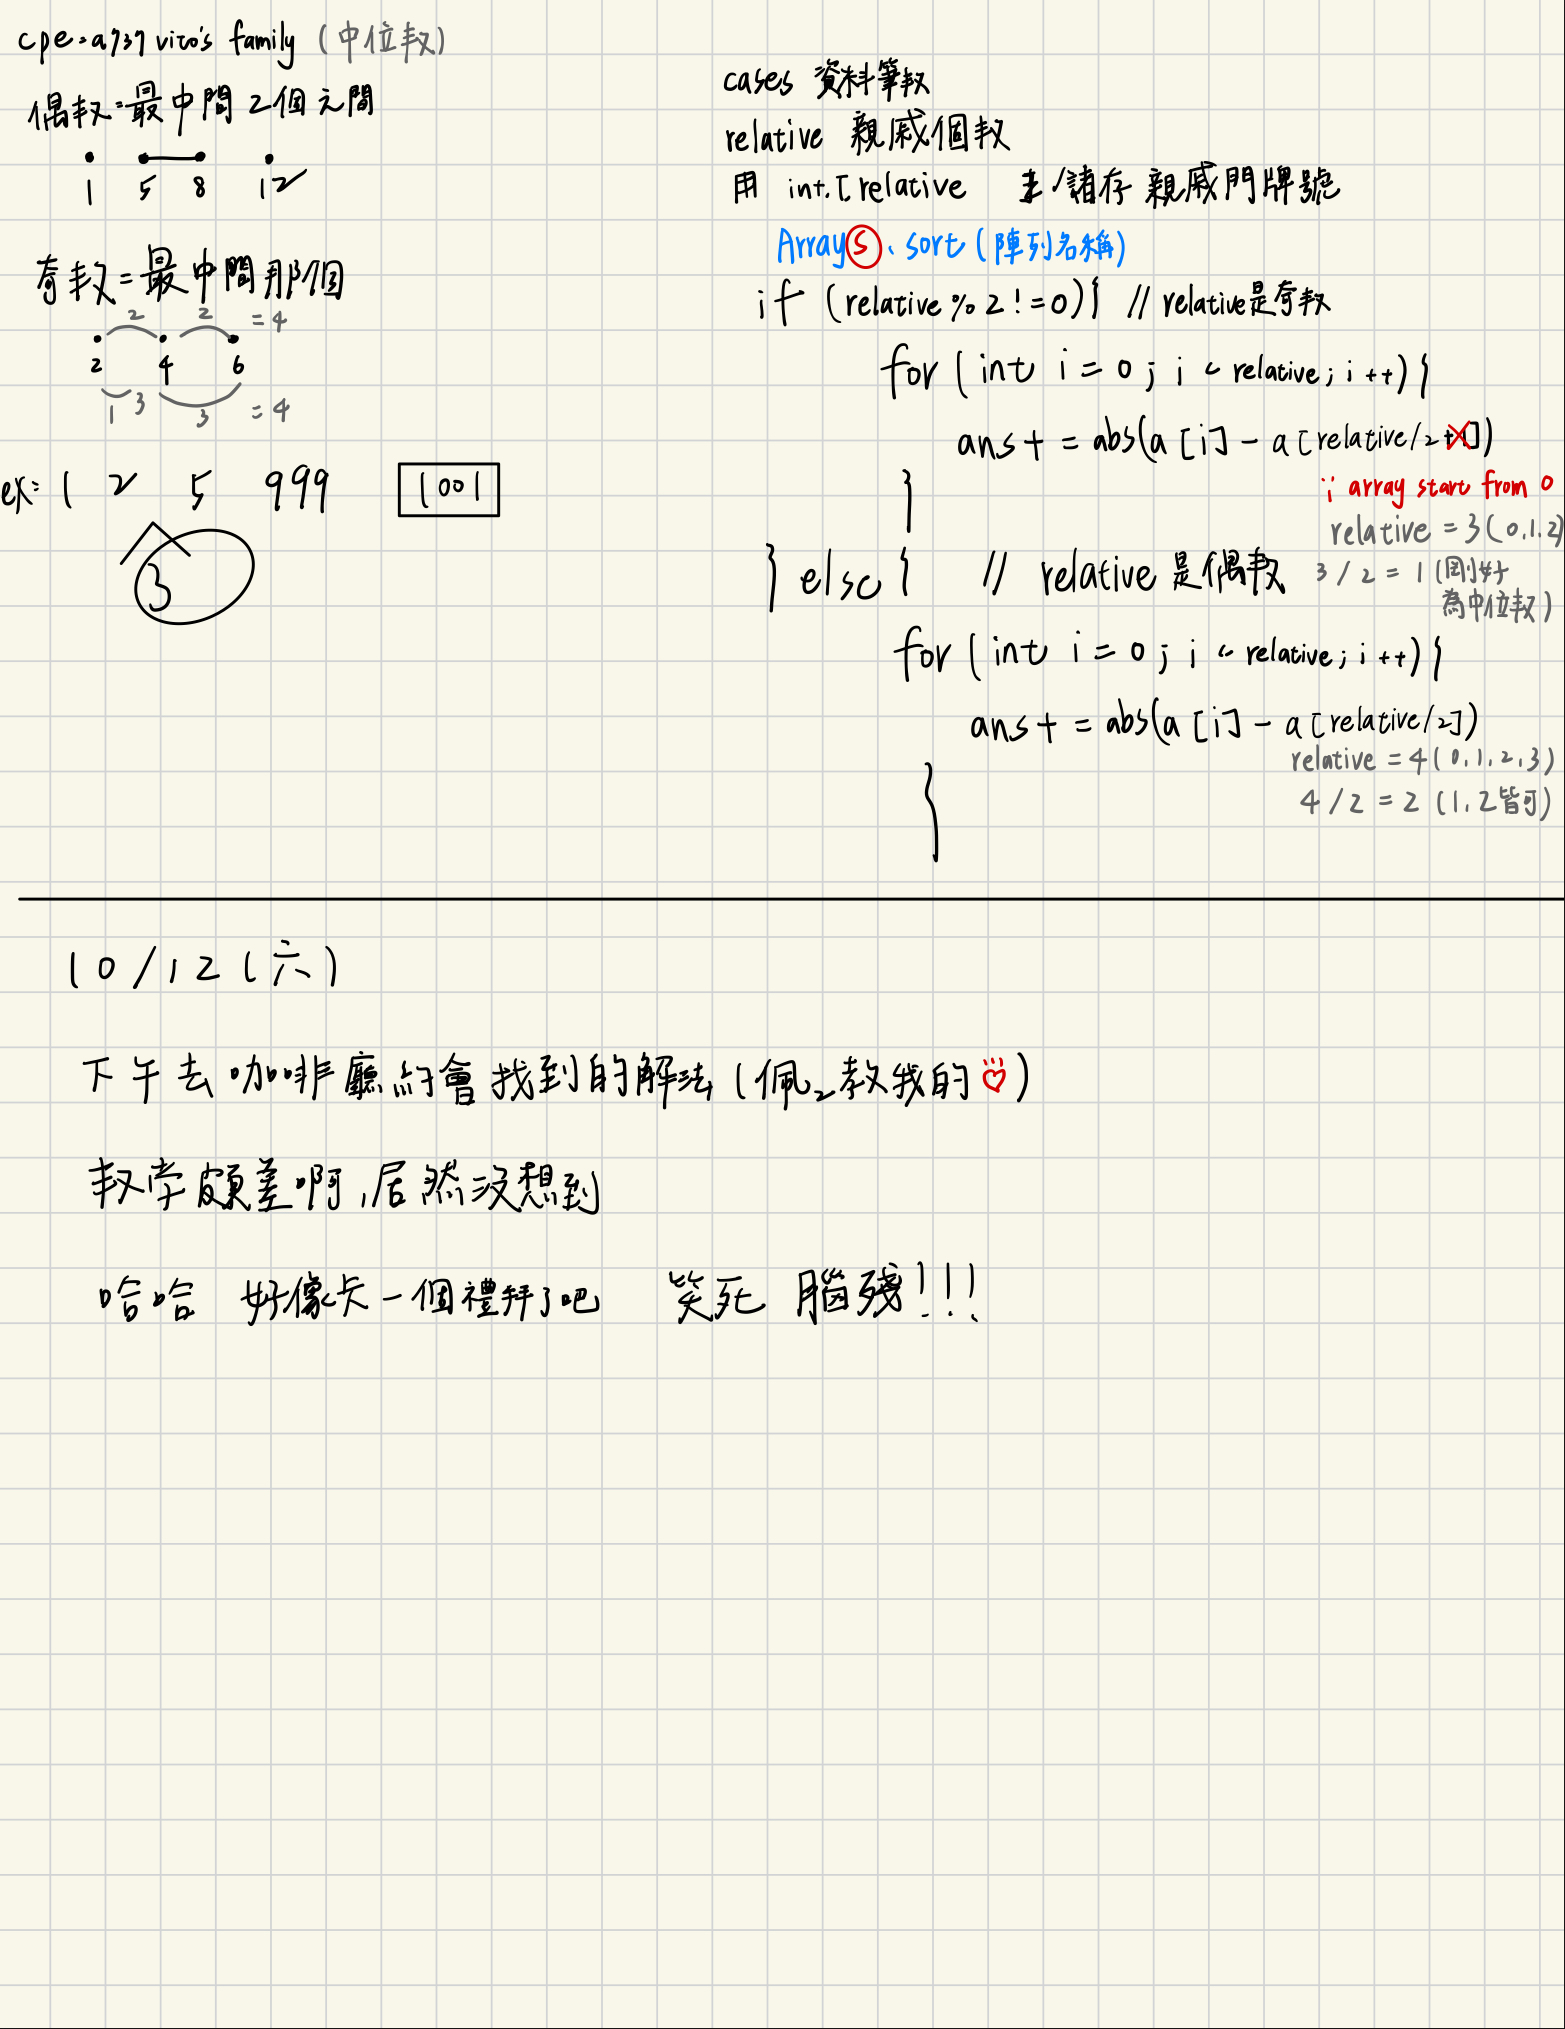 cpe:a737 vito's family (中位数)
偶数=最中間2個之間
1 5 8 12
奇数=最中間那個
2 2 =4
2 4 6
1 3 3 =4
ex: 1 2 5 999 1001
3
cases 資料筆数
relative 親戚個数
用 int.[relative 來儲存親戚門牌號
Arrays.sort(陣列名稱)
if (relative % 2 != 0){ // relative是奇数
for (int i = 0; i < relative; i++){
ans += abs(a[i] - a[relative/2+1])
∵ array start from 0
}
relative = 3(0.1.2)
} else { // relative 是偶数
3/2 = 1 (剛好
為中位数)
for (int i = 0; i < relative; i++){
ans += abs(a[i] - a[relative/2])
relative = 4(0.1.2.3)
4/2 = 2 (1.2皆可)
}
10/12(六)
下午去咖啡廳約會找到的解法(佩2教我的)
数学頗差啊,居然没想到
哈哈 好像卡一個禮拜了吧 笑死 腦殘!!!